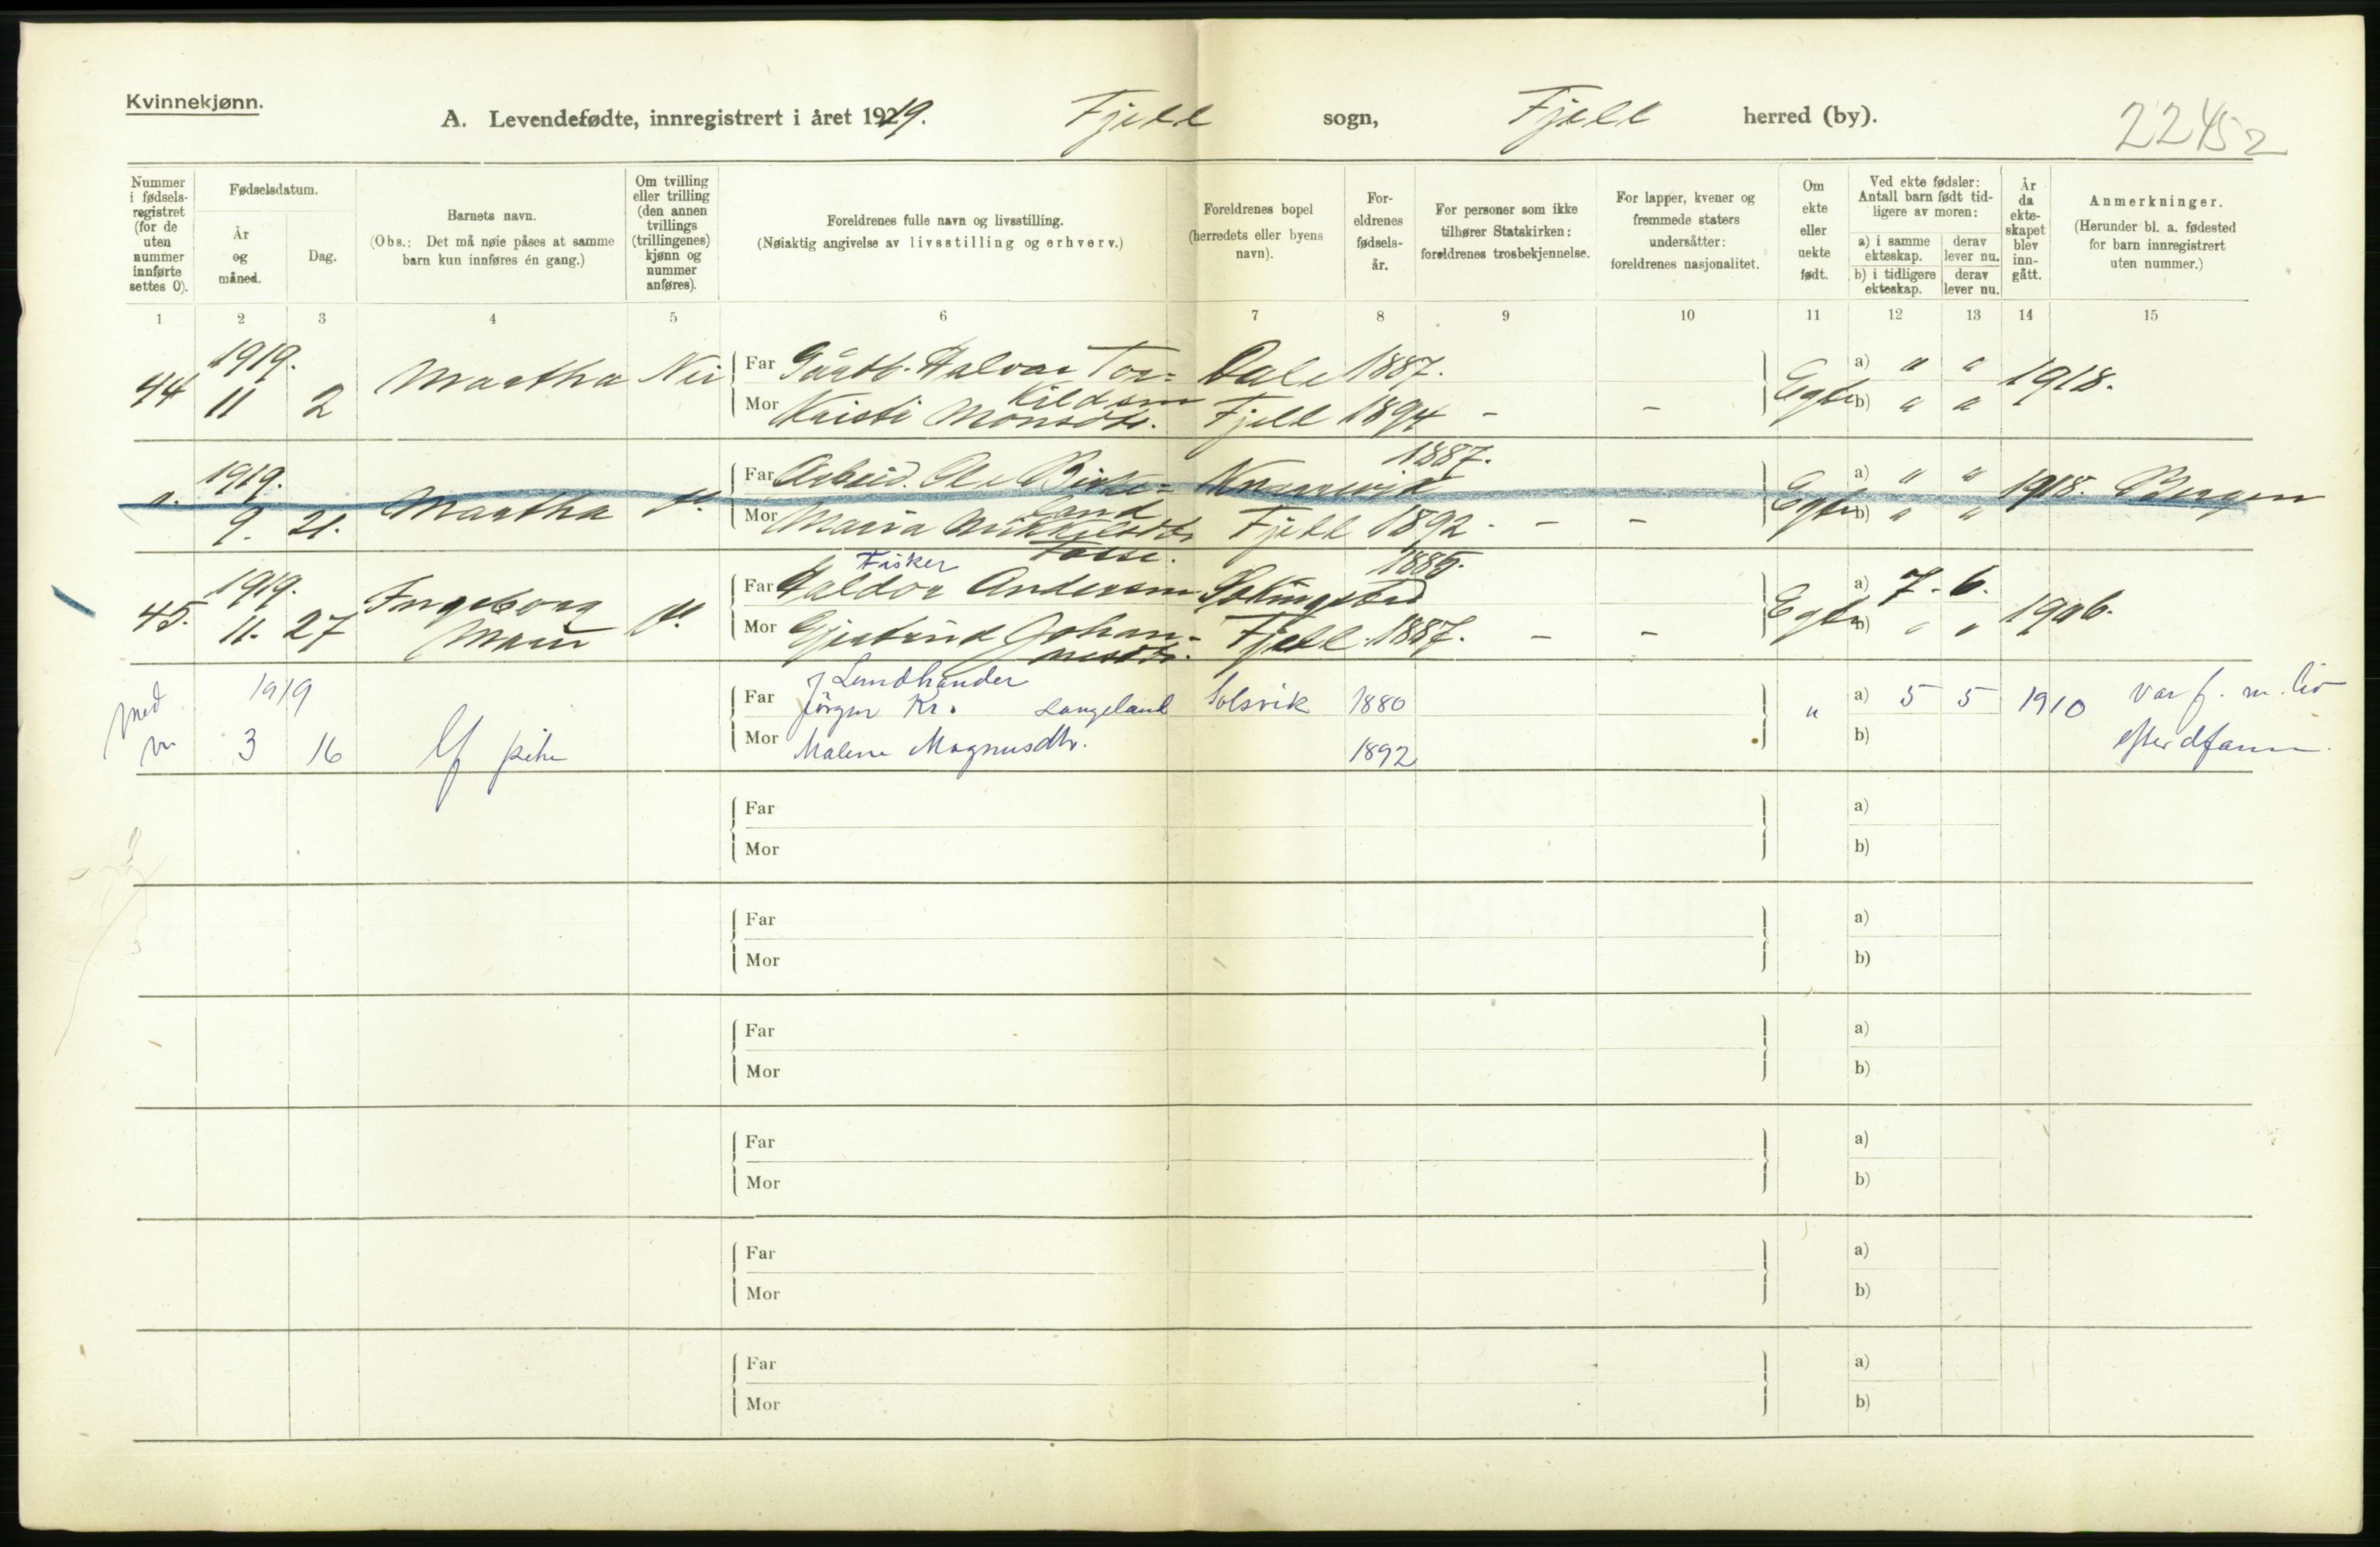 Kvinnekjønn.
A. Levendefødte, innregistrert i året 1919. Fjell sogn, Fjell herred (by). 22452
Nummer i fødsels-registret (for de uten nummer innførte settes 0).
Fødselsdatum.
År og måned.
Dag.
Barnets navn.
(Obs.: Det må nøie påses at samme barn kun innføres én gang.)
Om tvilling eller trilling (den annen tvillings (trillingenes) kjønn og nummer anføres).
Foreldrenes fulle navn og livsstilling.
(Nøiaktig angivelse av livsstilling og erhverv.)
Foreldrenes bopel (herredets eller byens navn).
For-eldrenes fødsels-år.
For personer som ikke tilhører Statskirken: foreldrenes trosbekjennelse.
For lapper, kvener og fremmede staters undersåtter: foreldrenes nasjonalitet.
Om ekte eller uekte født.
Ved ekte fødsler: Antall barn født tid-ligere av moren:
a) i samme ekteskap.
derav lever nu.
b) i tidligere ekteskap.
derav lever nu.
År da ekte-skapet blev inn-gått.
Anmerkninger.
(Herunder bl. a. fødested for barn innregistrert uten nummer.)
1 2 3 4 5 6 7 8 9 10 11 12 13 14 15
44 1919. 11 2 Martha Nei
Far Gårdb. Halvar Tor= kildsen Dale 1887.
Mor Kristi Monsdtr. Fjell 1894 - -
Egte a) " " b) " " 1918.
0. 1919. 9. 21. Martha N.
Far Arbeid. Birke= land 1887.
Mor Maria Mikkelsdtr. Fjell 1892. - -
Egte a) " " b) " " 1918. Bergen
45. 1919. 11. 27 Ingeborg Marie N.
Far Fisker Haldor Andersen 1885.
Mor Gjertrud Johan- nesdtr. Fjell 1887. - -
Egte a) 7. 6. b) " " 1906.
1919 3 16 pike
Far Landhandler Jörgen Kr. Langeland Solsvik 1880
Mor Malene Magnusdtr. 1892
" a) 5 5 b) 1910 var f. m. liv
Far a)
Mor b)
Far a)
Mor b)
Far a)
Mor b)
Far a)
Mor b)
Far a)
Mor b)
Far a)
Mor b)